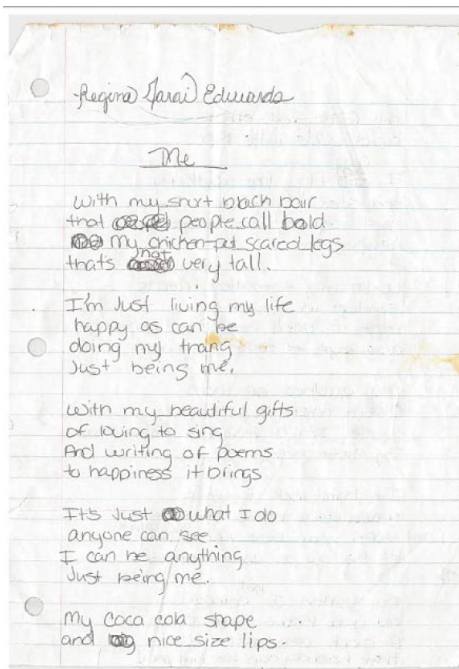 Regina Jarai Edwards
Me
with my short black hair
that people call bald
my chicken-pot scared legs
that's not very tall.
I'm Just living my life
happy as can be
doing my thang
Just being me.
with my beautiful gifts
of loving to sing
And writing of poems
to happiness it brings
It's Just what I do
anyone can see
I can be anything
Just being me.
My coca cola shape
and nice size lips.